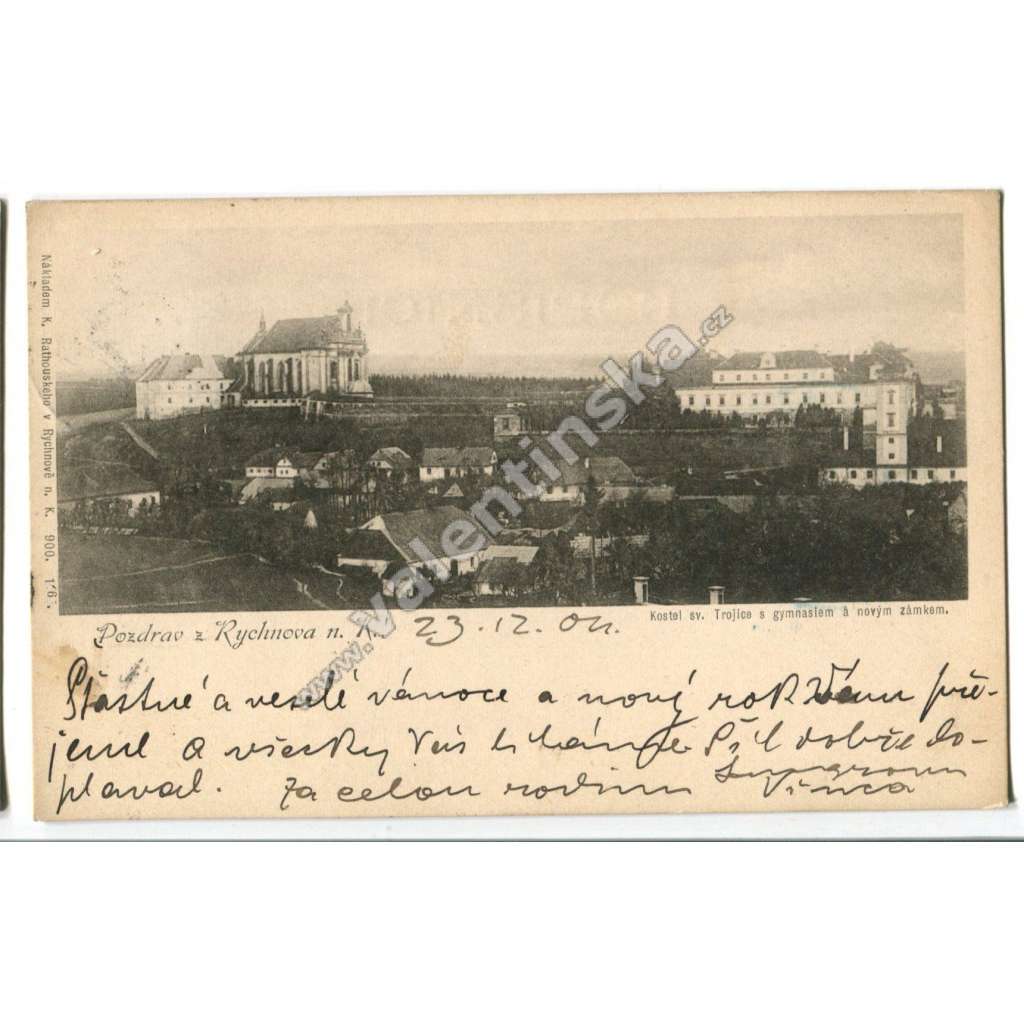 Nákladem K. Rathouského v Rychnově n. K. 900.
www.valentinska.cz
Kostel sv. Trojice s gymnasiem a novým zámkem.
Pozdrav z Rychnova n. K. 23.12.04.
Šťastné a veselé vánoce a nový rok Vám pře-
jeme a všecky Vás líbáme dobře do-
plaval. Za celou rodinu
Vinca